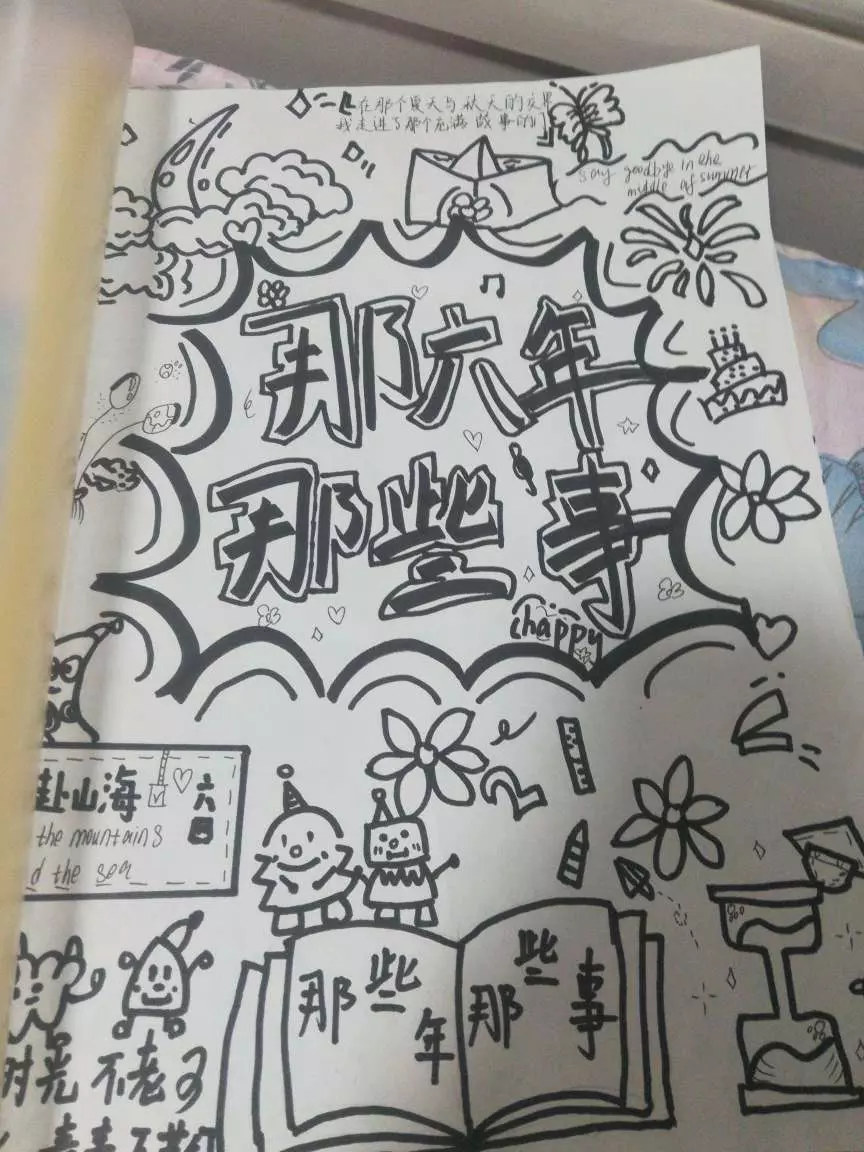 在那个夏天与秋天的交界
我走进了那个充满故事的门
say goodbye in the
middle of summer
那六年
那些事
happy
赴山海
六
the mountains
d the sea
那些年 那些事
时光不老